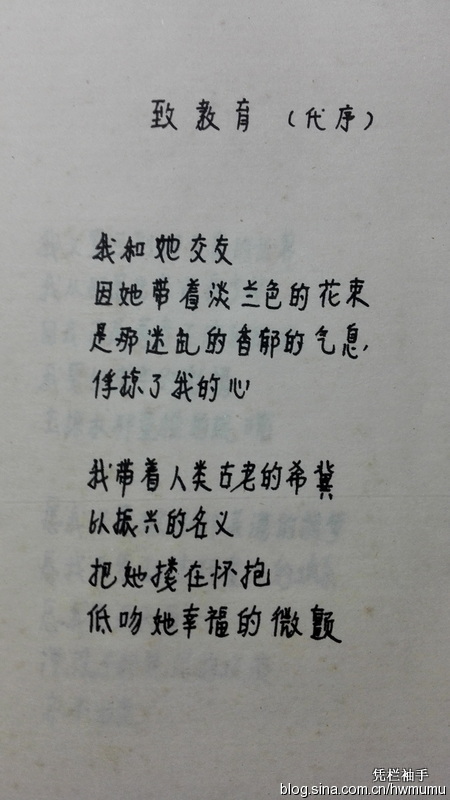 致教育（代序）
我和她交友
因她带着淡兰色的花束
是那迷乱的香郁的气息，
俘掠了我的心
我带着人类古老的希冀
以振兴的名义
把她搂在怀抱
低吻她幸福的微颤
凭栏袖手
blog.sina.com.cn/hwmumu